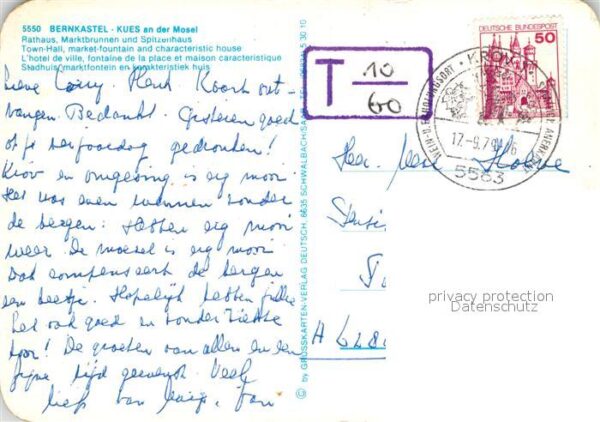 5550 BERNKASTEL - KUES an der Mosel
Rathaus, Marktbrunnen und Spitzenhaus
Town-Hall, market-fountain and characteristic house
L'hotel de ville, fontaine de la place et maison caracteristique
Stadhuis, marktfontein en karakteristiek huis
Lieve Henk Kaart ont-
vangen. Bedankt. Gisteren goed
op je gedronken!
Kröv en omgeving is erg mooi
Het was even wennen zonder
de bergen. Hebben erg mooi
weer. De moesel is erg mooi
Dat compenseert de bergen
een beetje. Hopelijk hebben jullie
het ook goed en zonder ziekte
hoor! De groeten van allen en een
fijne tijd gewenst. Veel
liefs van
© by GROSSKARTEN-VERLAG DEUTSCH, 6635 SCHWALBACH/SAAR
T 10
60
DEUTSCHE BUNDESPOST
50
WEIN-U. ERHOLUNGSORT
17.-9.79
5563
H 628
privacy protection
Datenschutz